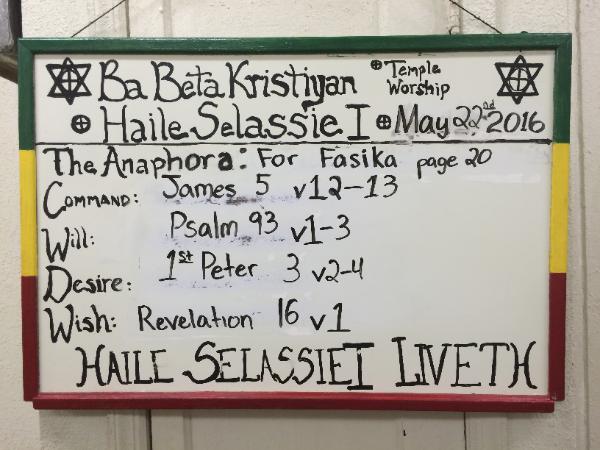 Ba Beta Kristiyan Temple Worship
Haile Selassie I May 22nd 2016
The Anaphora: For Fasika page 20
Command: James 5 v12-13
Will: Psalm 93 v1-3
Desire: 1st Peter 3 v2-4
Wish: Revelation 16 v1
HAILE SELASSIE I LIVETH